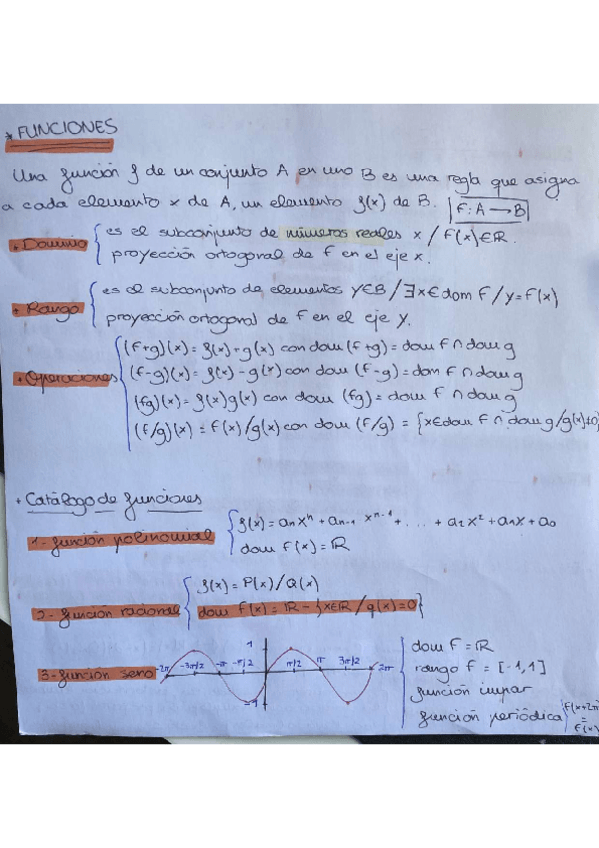 * FUNCIONES
Una función f de un conjunto A en uno B es una regla que asigna
a cada elemento x de A, un elemento f(x) de B. f: A → B
+ Dominio { es el subconjunto de números reales x / f(x)∈R.
proyección ortogonal de f en el eje x.
+ Rango { es el subconjunto de elementos y∈B / ∃x∈dom f / y=f(x)
proyección ortogonal de f en el eje y.
+ Operaciones { (f+g)(x) = f(x)+g(x) con dom (f+g) = dom f ∩ dom g
(f-g)(x) = f(x)-g(x) con dom (f-g) = dom f ∩ dom g
(fg)(x) = f(x)g(x) con dom (fg) = dom f ∩ dom g
(f/g)(x) = f(x)/g(x) con dom (f/g) = {x∈dom f ∩ dom g/g(x)≠0}
+ Catálogo de funciones
1- función polinomial { f(x) = aₙxⁿ + aₙ₋₁ xⁿ⁻¹ + ... + a₂x² + a₁x + a₀
dom f(x) = ℝ
2- función racional { f(x) = P(x) / Q(x)
dom f(x) = ℝ - {x∈ℝ / q(x)=0}
3- función seno
1
-2π -3π/2 -π -π/2 π/2 π 3π/2 2π
-1
dom f = ℝ
rango f = [-1,1]
función impar
función periódica } f(x+2π) = f(x)